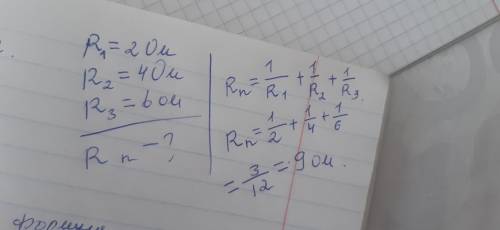 R₁=2Ом
R₂=4Ом
R₃=6ом
R п-?
Rп=1/R₁+1/R₂+1/R₃
Rп=1/2+1/4+1/6
=3/12=9ом.